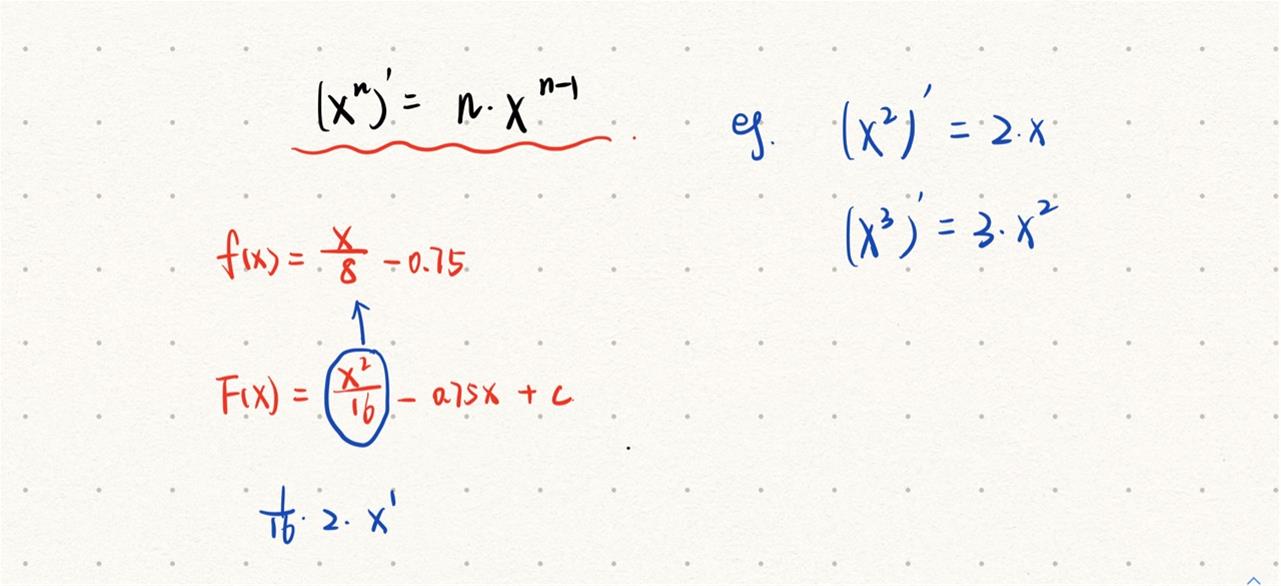 (xⁿ)' = n·x^(n-1)
eg. (x²)' = 2·x
(x³)' = 3·x²
f(x) = x/8 - 0.75
F(x) = x²/16 - 0.75x + c
1/16 · 2 · x¹